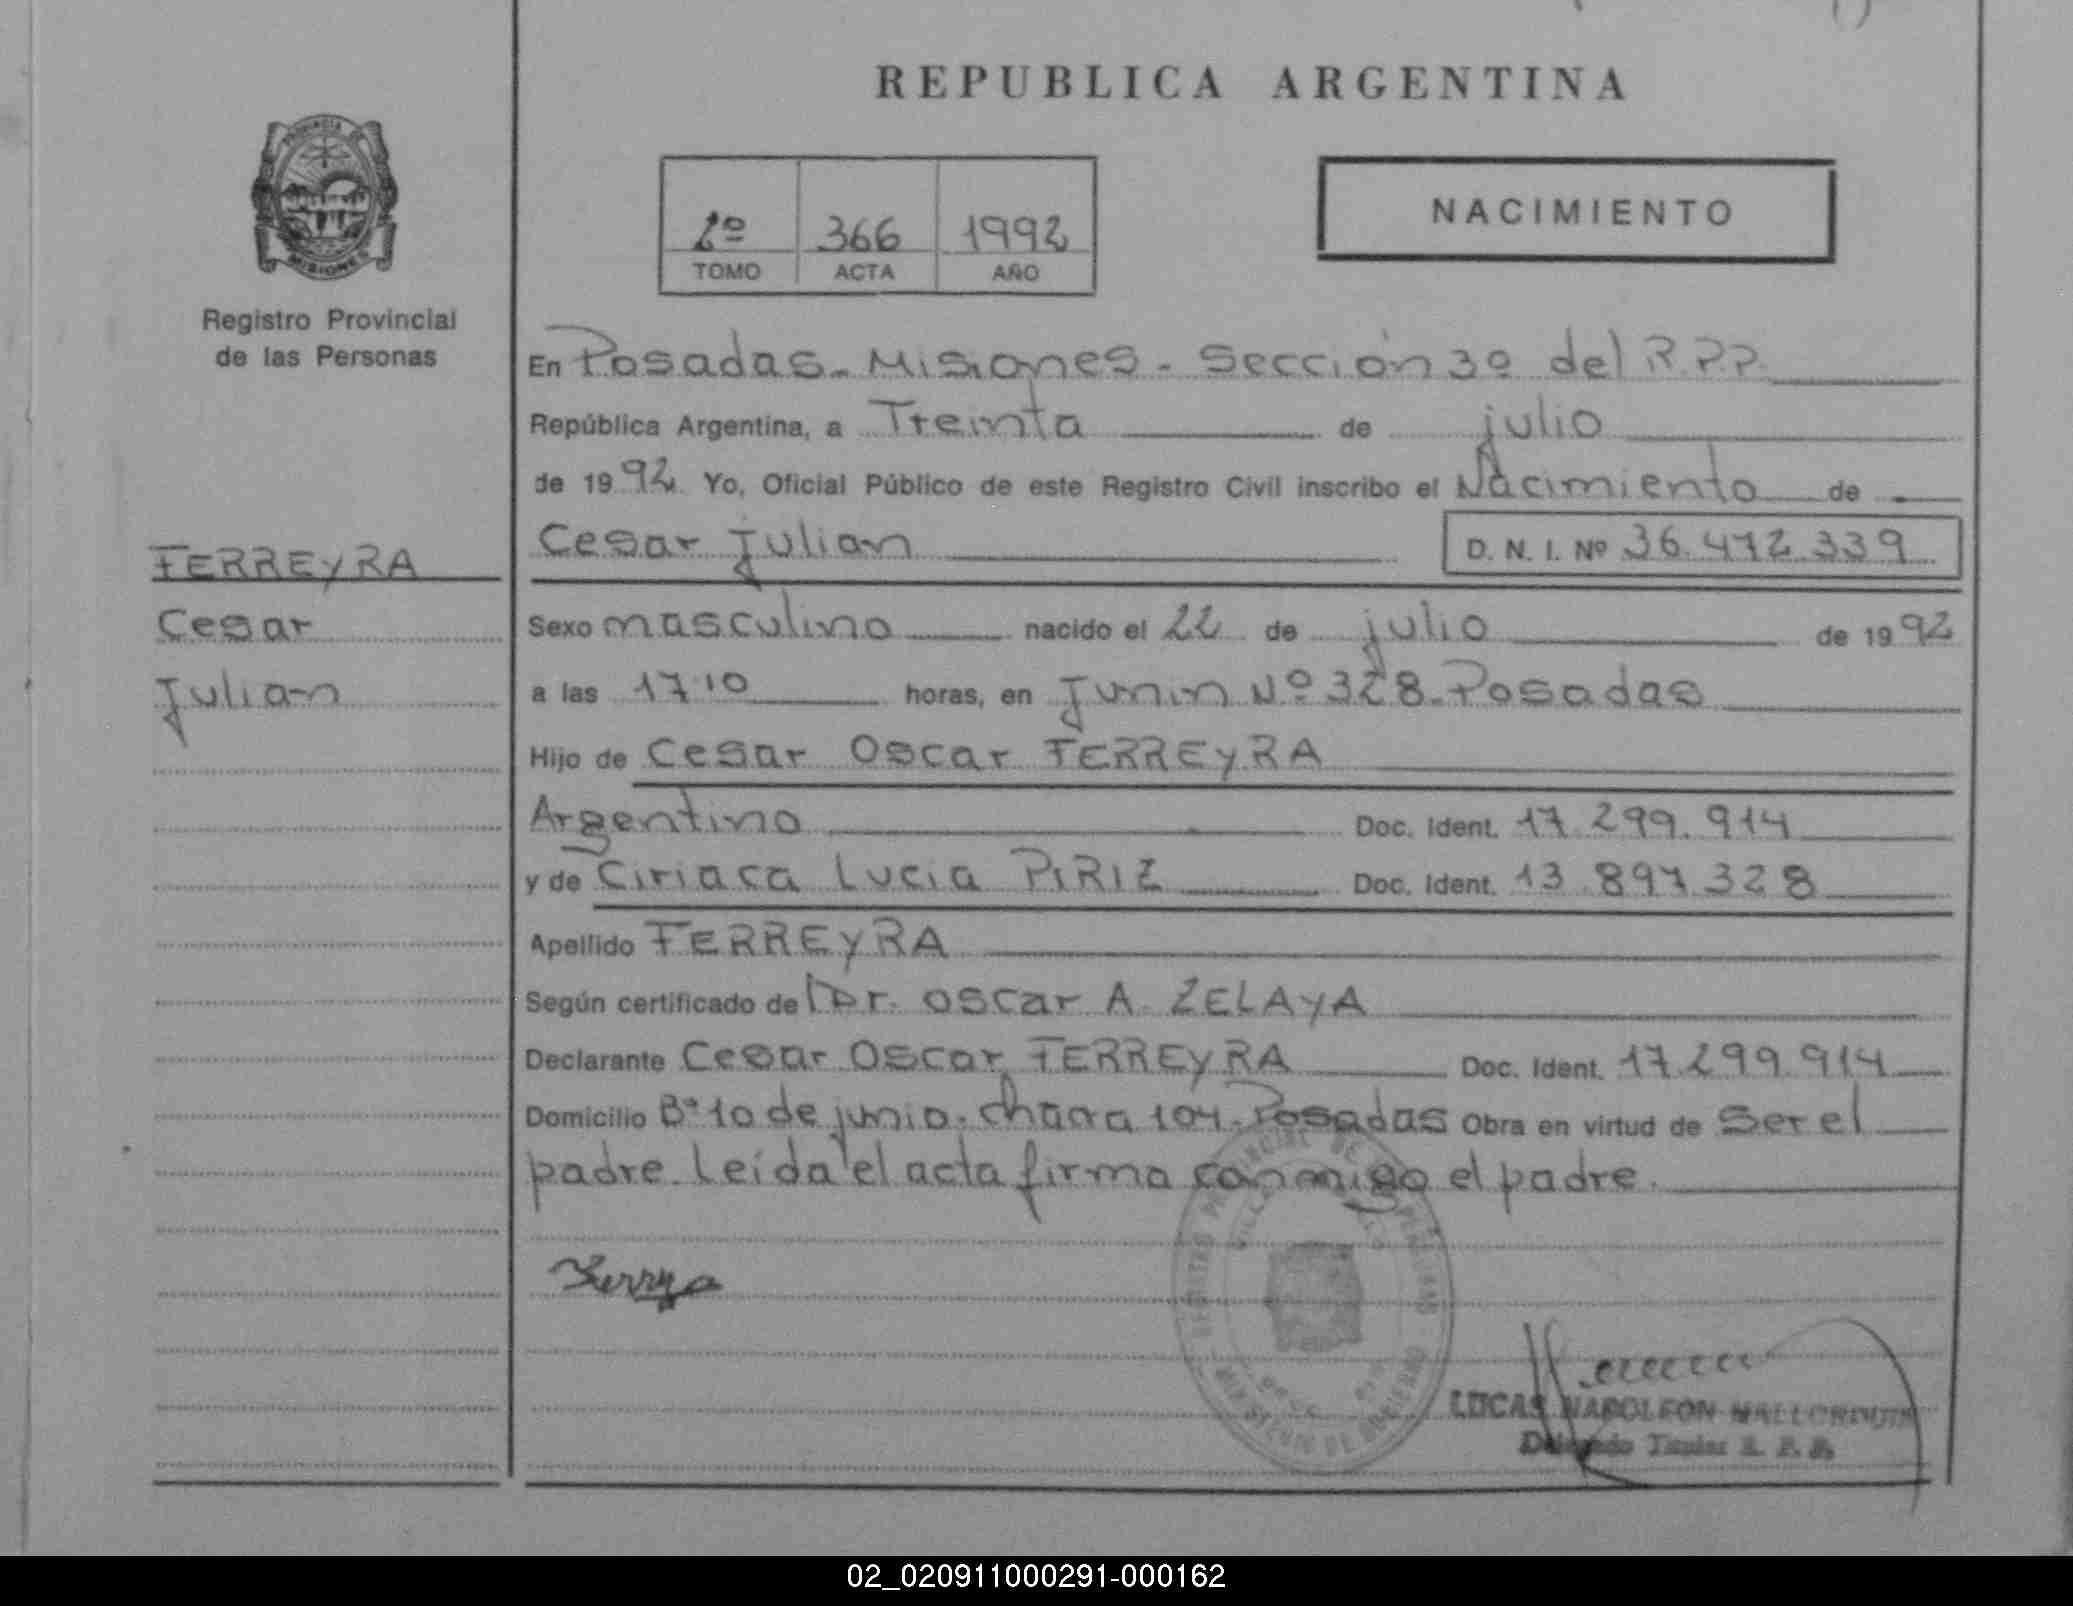 REPUBLICA ARGENTINA
PROVINCIA DE
MISIONES
Registro Provincial
de las Personas
2º 366 1992
TOMO ACTA AÑO
NACIMIENTO
En Posadas - Misiones - Sección 3º del R.P.P.
República Argentina, a Treinta de julio
de 1992 Yo, Oficial Público de este Registro Civil inscribo el Nacimiento de
Cesar Julian D. N. I. Nº 36.472.339
FERREYRA
Cesar
Julian
Sexo masculino nacido el 22 de julio de 1992
a las 17'10 horas, en Junin Nº 328 - Posadas
Hijo de Cesar Oscar FERREYRA
Argentino Doc. Ident. 17.299.914
y de Ciriaca Lucia PIRIZ Doc. Ident. 13.897.328
Apellido FERREYRA
Según certificado de Dr. Oscar A. ZELAYA
Declarante Cesar Oscar FERREYRA Doc. Ident. 17.299.914
Domicilio Bº 10 de junio - chacra 104 - Posadas Obra en virtud de Ser el
padre. Leída el acta firma conmigo el padre.
REGISTRO PROVINCIAL DE LAS PERSONAS
MINISTERIO DE GOBIERNO
LUCAS NAPOLEON
Delegado Titular R. P. P.
02_020911000291-000162